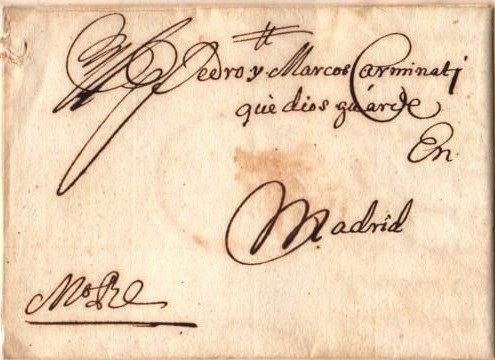 Pedro y Marcos Carminati
què dios guárde
En
Madrid